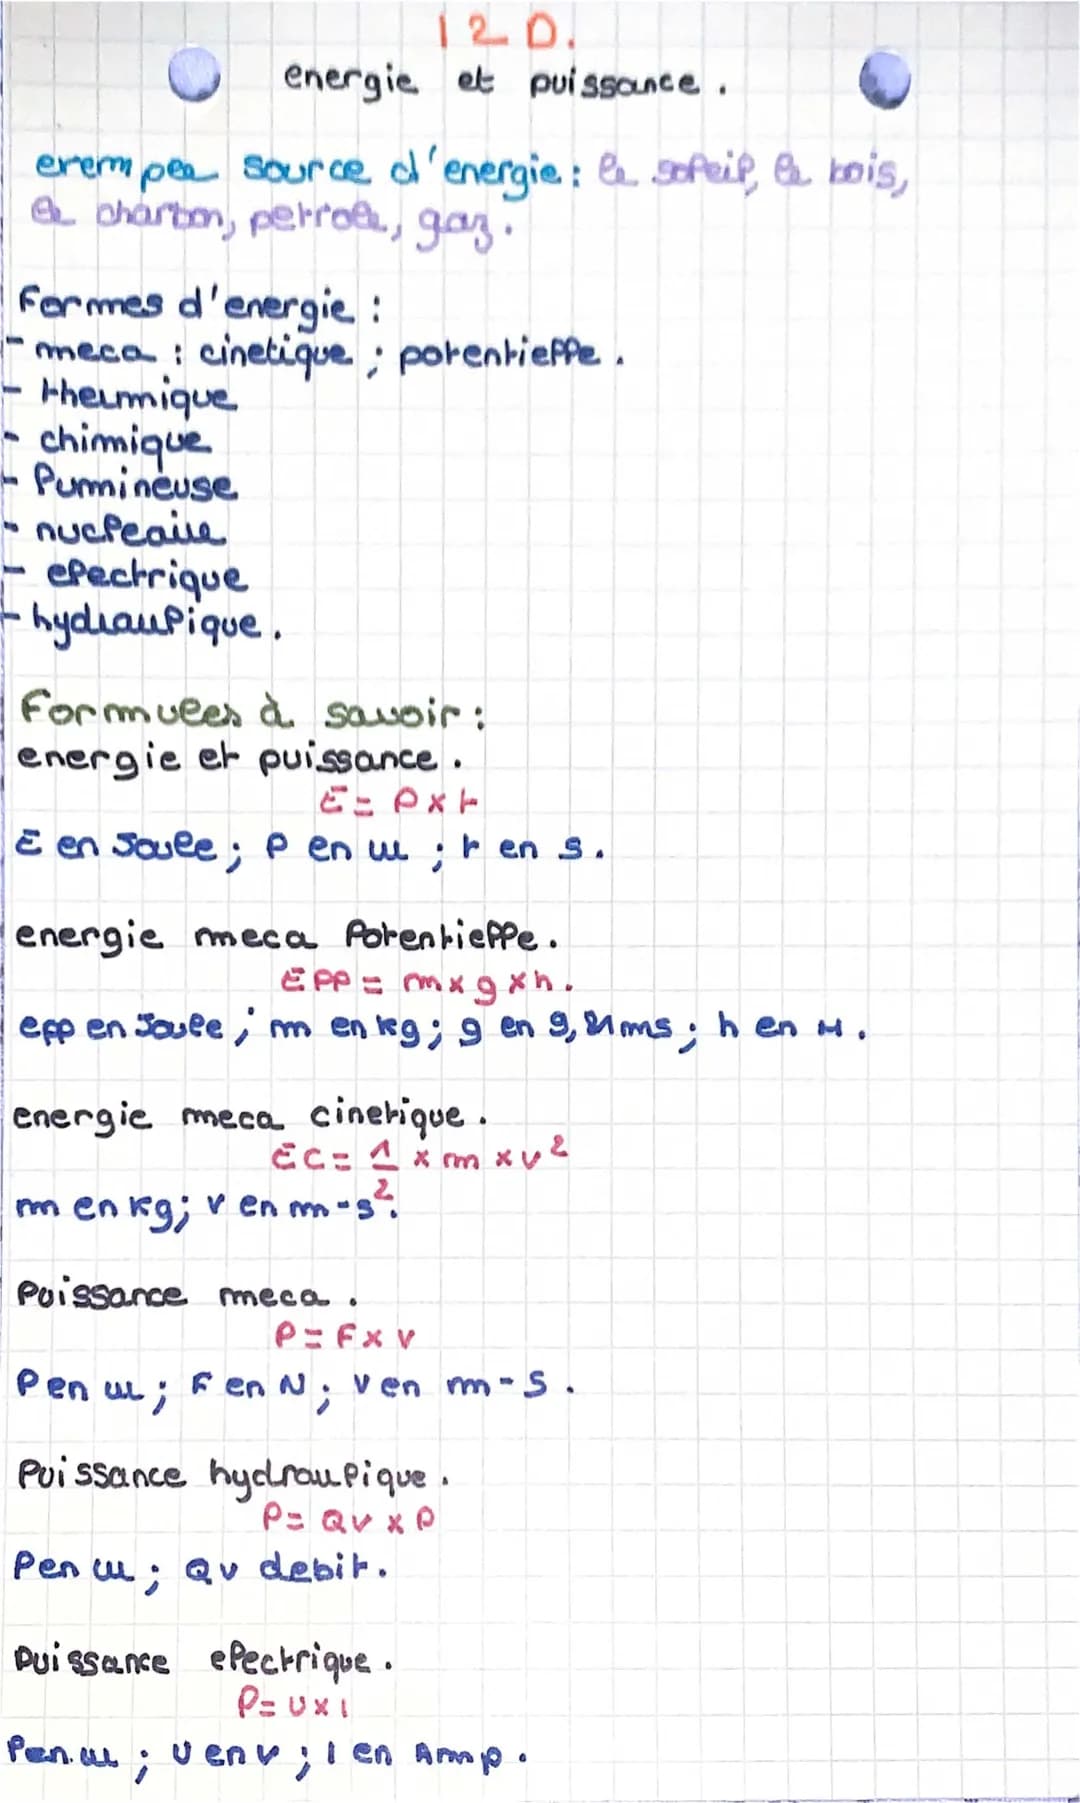 I 2 D.
energie et puissance.
exemples source d'energie : le soleil, le bois,
le charbon, petrole, gaz.
Formes d'energie :
- meca : cinetique ; potentielle.
- thermique
- chimique
- lumineuse
- nucleaire
- electrique
- hydraulique.
Formules à savoir :
energie et puissance.
E = P x t
E en Joule ; P en w ; t en s.
energie meca Potentielle.
EPP = m x g x h.
epp en Joule ; m en kg ; g en 9,81 ms ; h en M.
energie meca cinetique.
EC = 1/2 x m x v²
m en kg ; v en m-s².
Puissance meca.
P = F x v
P en w ; F en N ; v en m-s.
Puissance hydraulique.
P = Qv x P
P en w ; Qv debit.
Puissance electrique.
P = U x I
P en w ; U en v ; I en Amp.